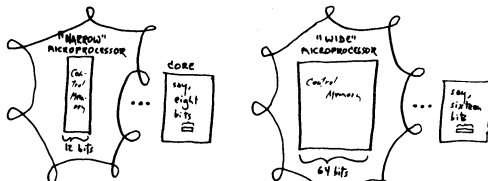 "NARROW"
MICROPROCESSOR
Con-
trol
Mem-
ory
12 bits
...
CORE
say,
eight
bits
"WIDE"
MICROPROCESSOR
Control
Memory
64 bits
...
say,
sixteen
bits